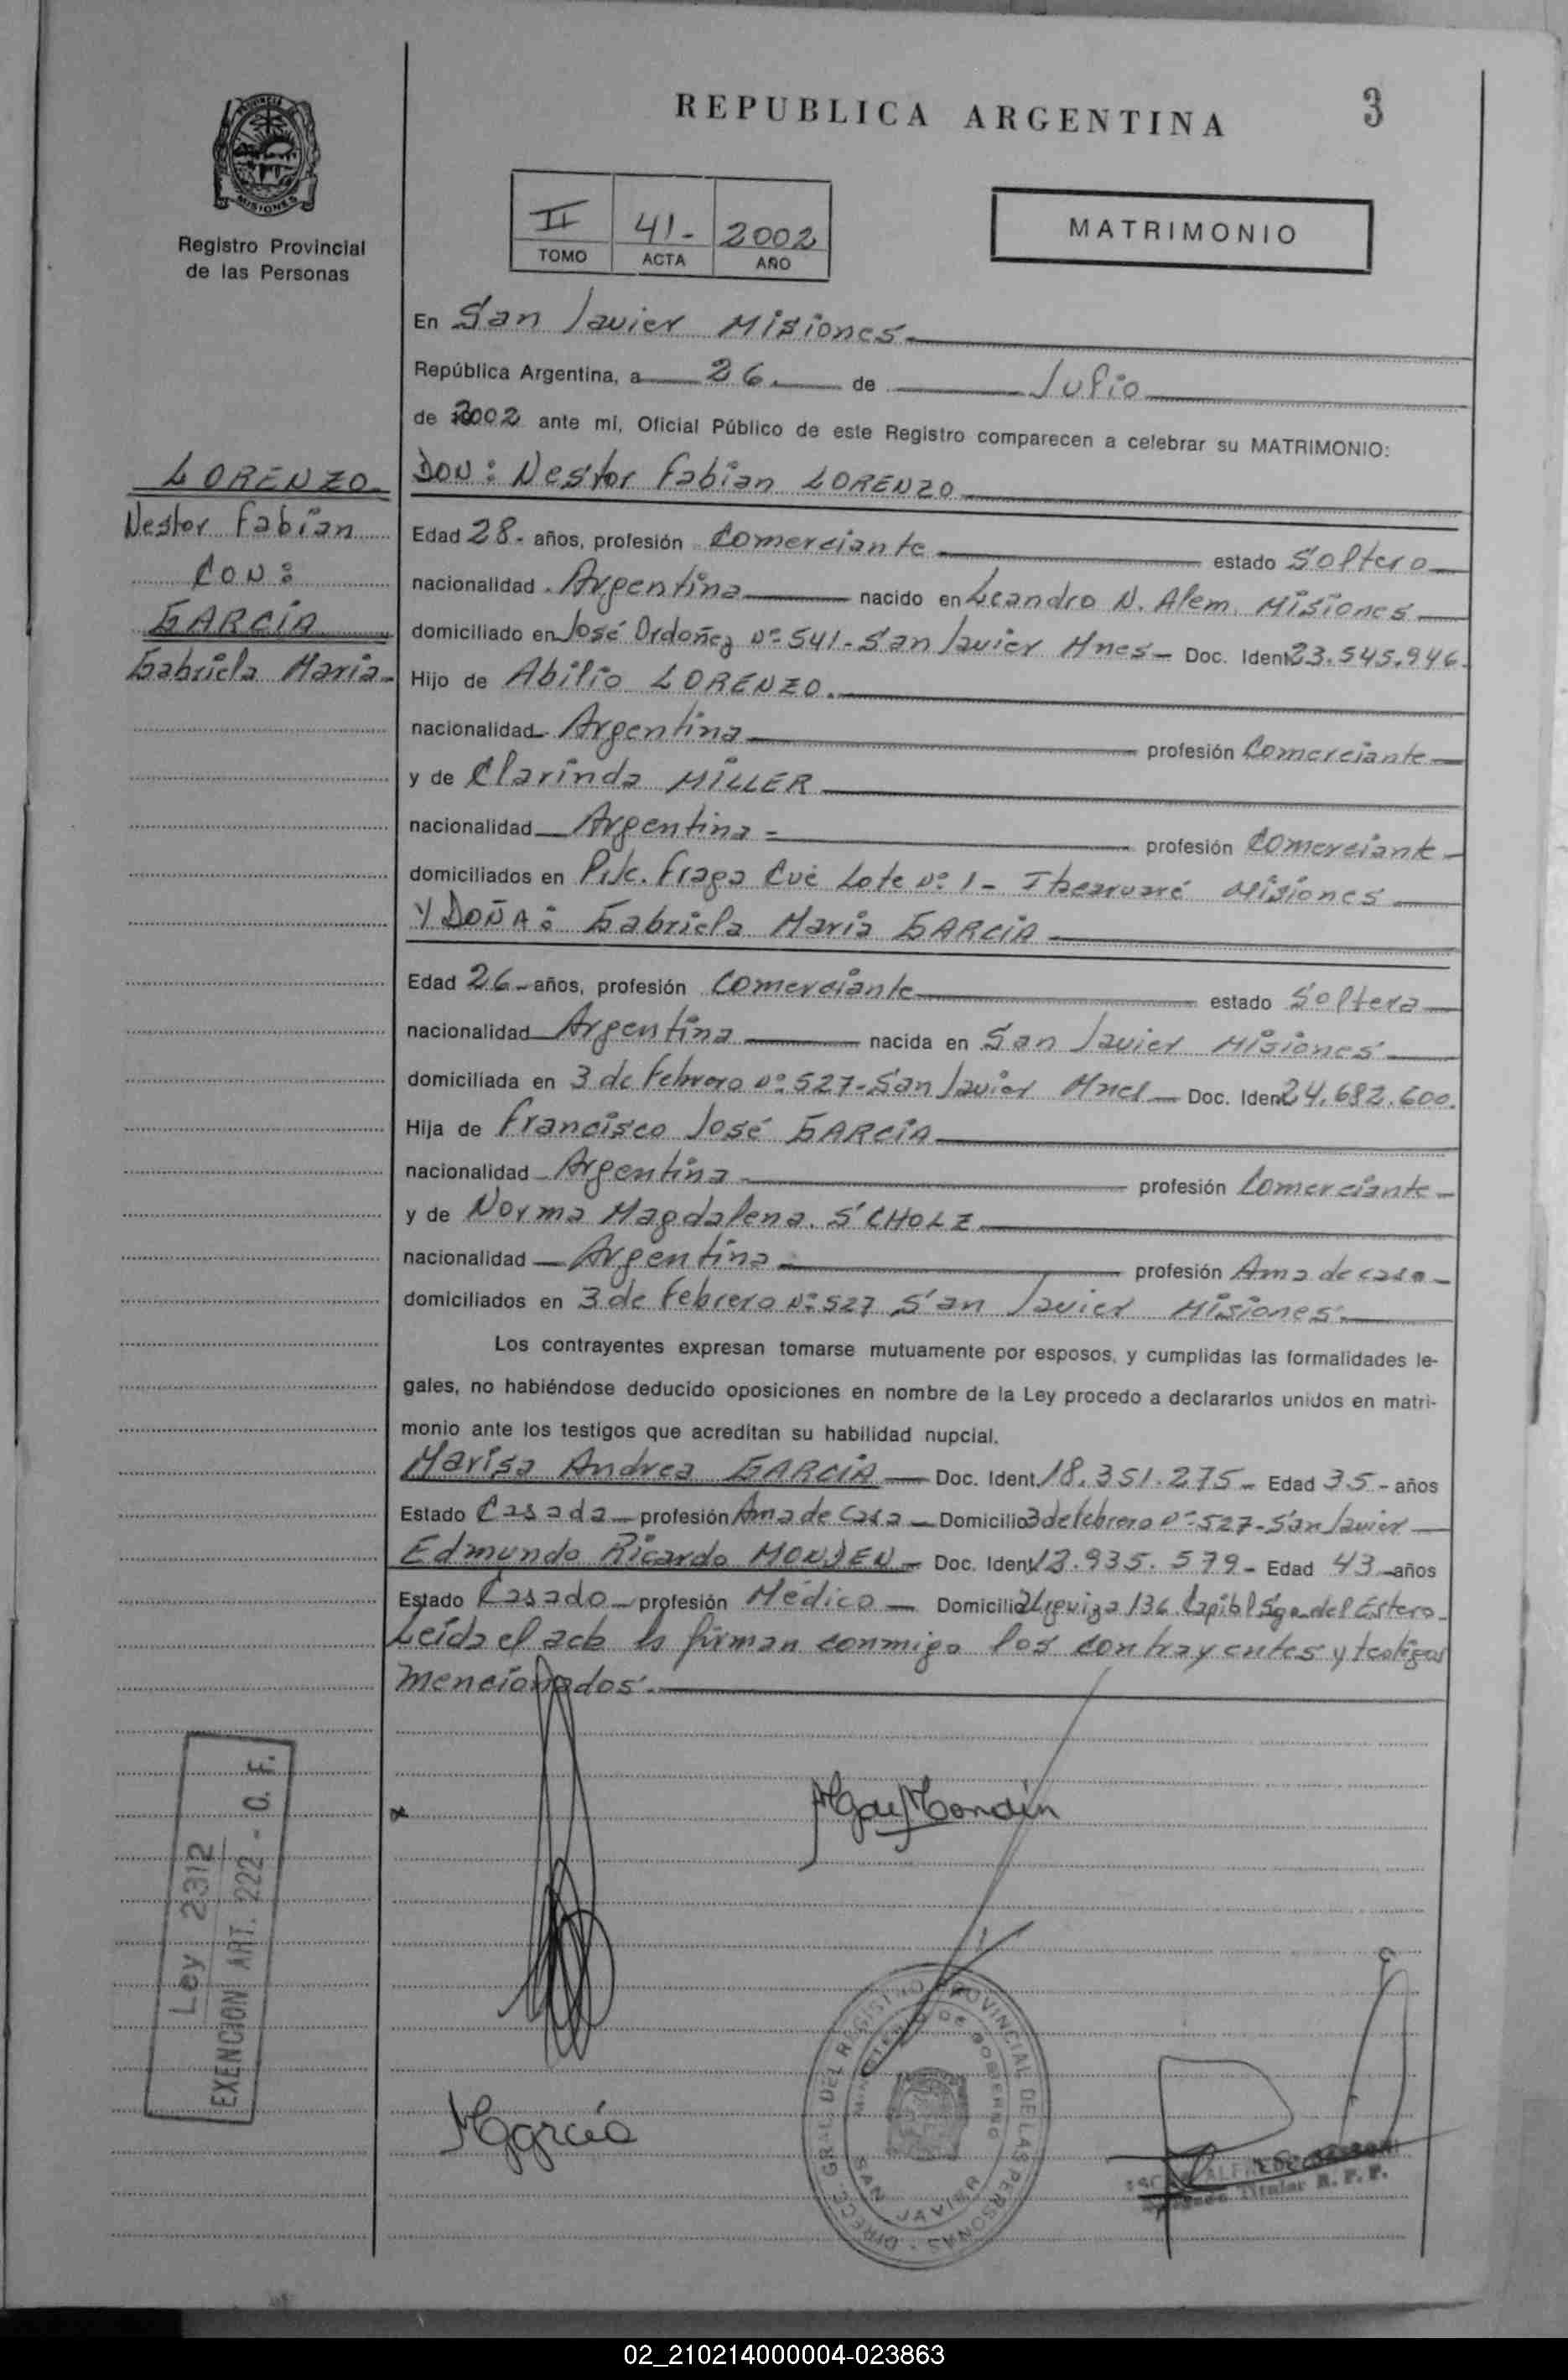 REPUBLICA ARGENTINA
3
MISIONES
Registro Provincial
de las Personas
II 41- 2002
TOMO ACTA AÑO
MATRIMONIO
En San Javier Misiones.
República Argentina, a 26. de Julio
de 2002 ante mí, Oficial Público de este Registro comparecen a celebrar su MATRIMONIO:
LORENZO
Nestor Fabian
CON:
GARCIA
Gabriela Maria
DON: Nestor Fabian LORENZO
Edad 28- años, profesión Comerciante estado Soltero
nacionalidad Argentina nacido en Leandro N. Alem Misiones
domiciliado en José Ordoñez Nº 541- San Javier Mnes- Doc. Ident 23.545.946.
Hijo de Abilio LORENZO.
nacionalidad Argentina profesión Comerciante
y de Clarinda MILLER
nacionalidad Argentina- profesión Comerciante
domiciliados en Fraga Cué Lote Nº 1- Misiones
Y DOÑA: Gabriela Maria GARCIA
Edad 26- años, profesión Comerciante estado Soltera
nacionalidad Argentina nacida en San Javier Misiones
domiciliada en 3 de Febrero Nº 527- San Javier Mnes Doc. Ident 24.682.600.
Hija de Francisco José GARCIA
nacionalidad Argentina profesión Comerciante
y de Norma Magdalena. SCHOLZ
nacionalidad Argentina profesión Ama de casa
domiciliados en 3 de Febrero Nº 527 San Javier Misiones.
Los contrayentes expresan tomarse mutuamente por esposos, y cumplidas las formalidades le-
gales, no habiéndose deducido oposiciones en nombre de la Ley procedo a declararlos unidos en matri-
monio ante los testigos que acreditan su habilidad nupcial.
Marisa Andrea GARCIA Doc. Ident. 18.351.275- Edad 35- años
Estado Casada profesión Ama de Casa Domicilio 3 de febrero Nº 527- San Javier
Edmundo Ricardo Doc. Ident 13.935.579- Edad 43 años
Estado Casado profesión Médico Domicilio 136 Capital Sgo. del Estero-
Leída el acta la firman conmigo los contrayentes y testigos
mencionados.
Ley 2312
EXENCION ART. 222 - O. F.
MGarcía
DIREC. GRAL. DEL REGISTRO PROVINCIAL DE LAS PERSONAS
MINISTERIO DE GOBIERNO
SAN JAVIER
Titular R. P. P.
02_210214000004-023863